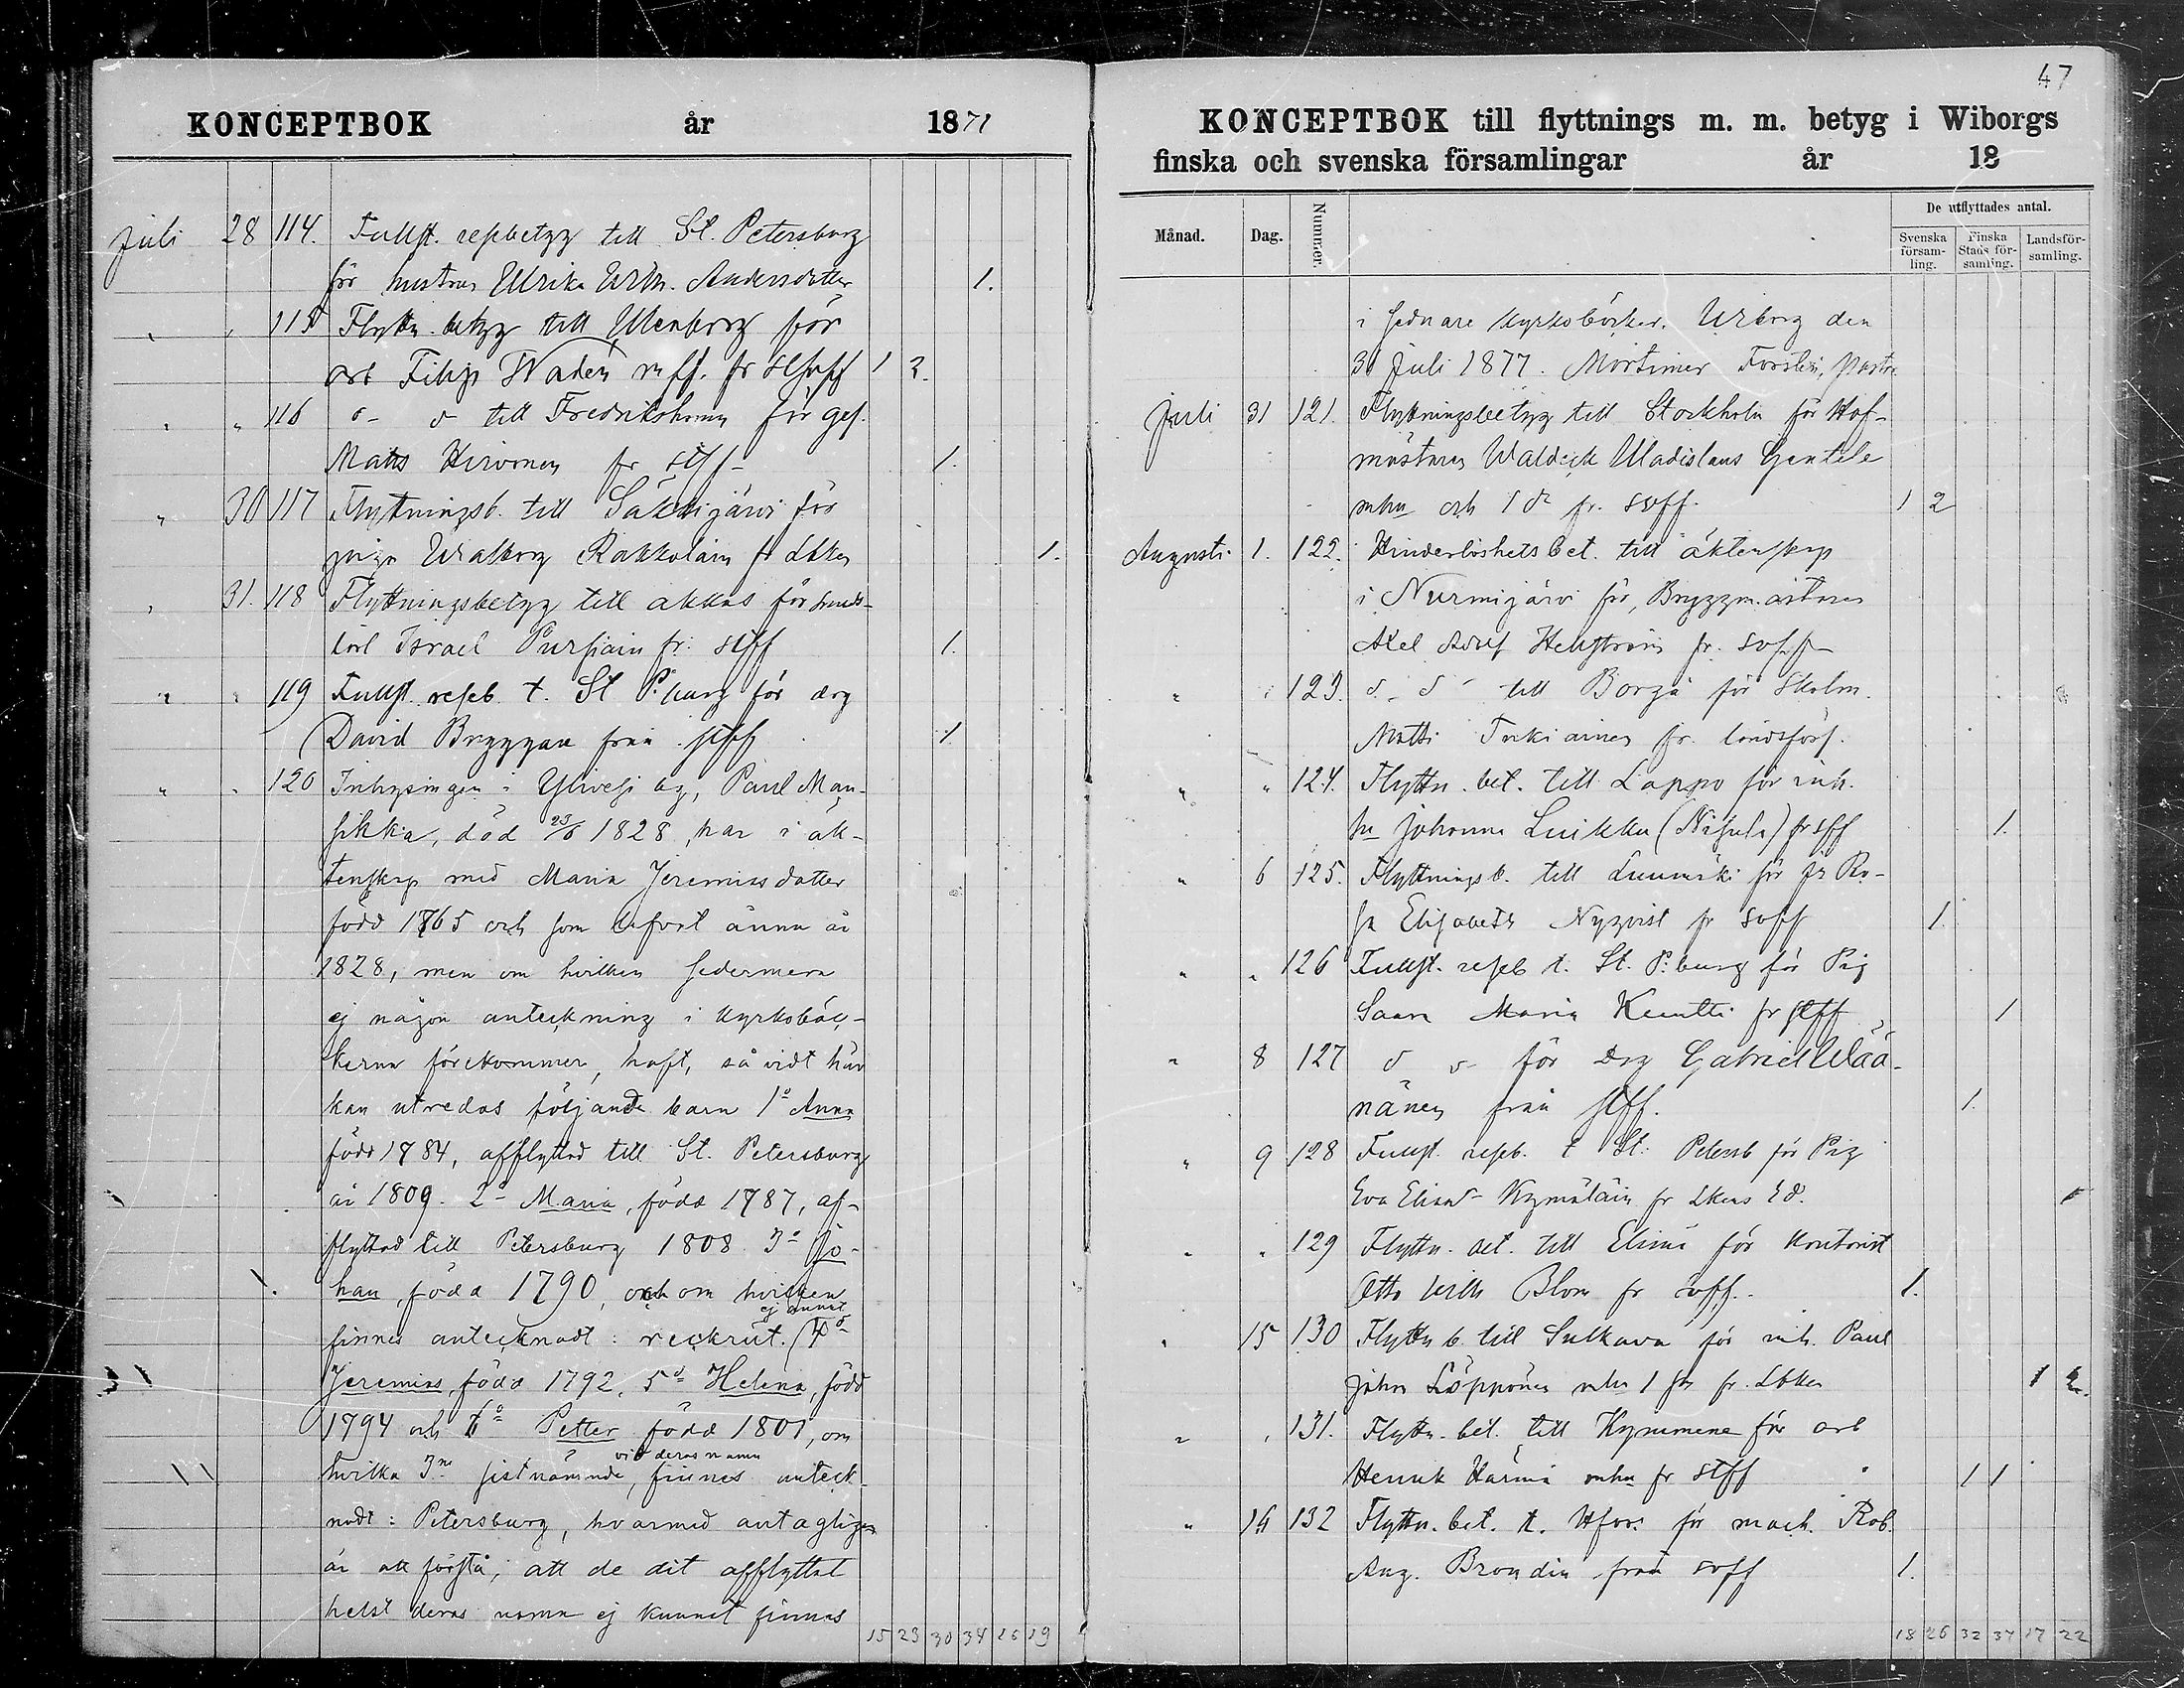 KONCEPTBOK år 1871
Juli 28 114. Fullst. resebetyg till St. Petersburg
för hustrun Ulrika Wilh. Andersdotter 1.
" " 115 Flyttn. betyg till Uleåborg för
arb Filip Wadén m ff. fr 1 2.
" " 116 d- d till Fredrikshamn för ges.
Matts Hirvonen fr stff- 1.
" 30 117 Flyttningsb. till Säkkijärvi för
pign Walborg Rakkolain fr Ldskn 1.
" 31. 118 Flyttningsbetyg till akkas för
Israel Pursiain fr: stff 1.
" " 119 Fullst. reseb t. St P:burg för drg
David Bryggare från stff 1.
" " 120 Inhysingen i Ylivesi by, Paul Man-
sikka, död 23/6 1828, har i äk-
tenskap med Maria Jeremiasdotter
född 1765 och som lefvat ännu år
1828, men om hvilken sedermera
ej någon anteckning i kyrkoböc-
kerna förekommer, haft, så vidt här
kan utredas följande barn 1o Anna
född 1784, afflyttad till St. Petersburg
år 1809. 2o Maria, född 1787, af-
flyttad till Petersburg 1808 3o Jo-
han, född 1790, och om hvilken
ej annat
finnes antecknadt: reckrut. 4o
Jeremias, född 1792. 5o Helena, född
1794 och 6o Petter född 1801, om
vid deras namn
hvilka 3ne sistnämnde, finnes anteck-
nadt: Petersburg, hvarmed antagligen
är att förstå, att de dit afflyttat
helst deras namn ej kunnat finnas
15 23 30 34 16 19
47
KONCEPTBOK till flyttnings m. m. betyg i Wiborgs
finska och svenska församlingar år 18
Månad. Dag. Nummer. De utflyttades antal.
Svenska försam-ling. Finska Stads för-samling. Landsför-samling.
i sednare kyrkoböcker. Wiborg den
31 Juli 1877. Mortimer Forstén, pastor
Juli 31 121. Flyttningsbetyg till Stockholm för Hof-
mästaren Waldeck Uladislaus Gentele
mhu och 1 dr fr. svff. 1 2
Augusti 1. 122. Hinderlöshetsbet. till äktenskap
i Nurmijärvi för Bryggmästaren
Axel Adolf Hellström fr. svff
" " 123. d. d till Borgå för Skolm.
Matti Turkiainen fr. landsförs.
" " 124. Flyttn. bet. till Lappo för inh.
hu Johanna Luikku (Nisula) fr stff 1.
" 6 125. Flyttningsb. till Luumäki för fr Ro-
sa Elisabeth Nyqvist fr svff 1.
" " 126 Fullst. reseb t. St. P:burg för Pig
Saara Maria Kemtti fr stff 1
" 8 127 d d- för drg Gabriel Wää-
nänen från stff. 1.
" 9 128 Fullst. reseb. t St. Petersb för Pig
Eva Elisab Kymäläin fr Lkens
" " 129 Flyttn. bet. till Elimä för kontorist
Otto Wilh Blom fr svff. 1.
" 15 130 Flyttn b. till Sulkava för inh. Paul
Johan Löppönen mhu 1 fr. Ldskn 1 2.
" " 131. Flyttn. bet. till Kymmene för arb
Henrik Harmä mhu fr stff 1 1
" 16 132 Flyttn. bet. t. Hfors för mach. Rob.
Aug. Brondin från svff 1.
18 26 32 37 17 22